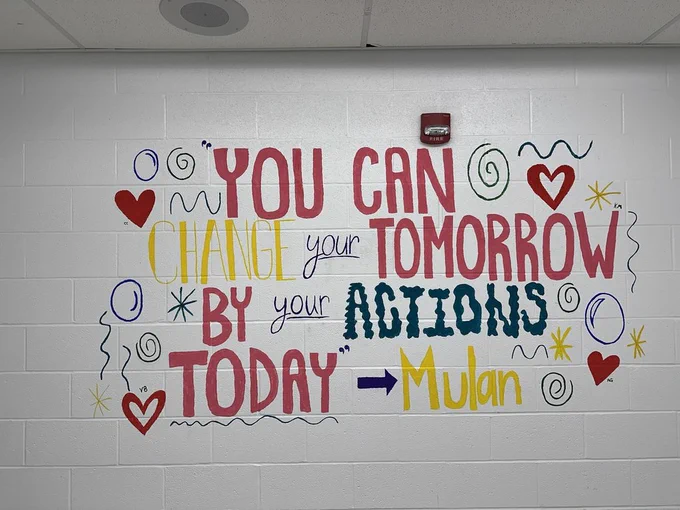 FIRE
"YOU CAN
CHANGE your TOMORROW
BY your ACTIONS
TODAY" → Mulan
KM
VB
NG